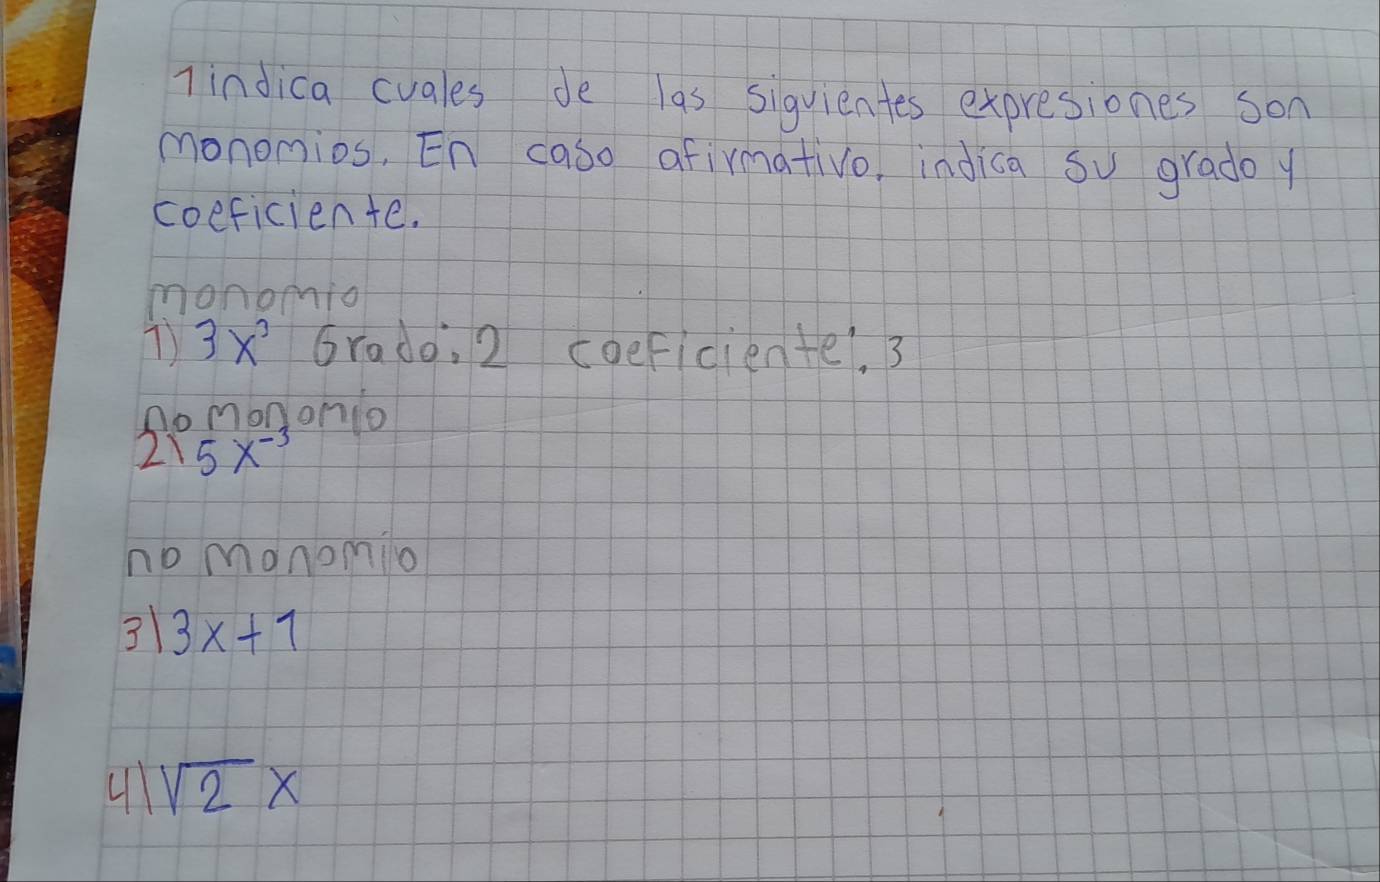 1 indica cuales de las siguientes expresiones son
monomios. En caso afirmativo, indica su grado y
coeficiente.
monomio
1) 3x³ Grado: 2 coeficiente: 3
no monomio
2) 5x⁻³
no monomio
3) 3x+1
4) √2 x